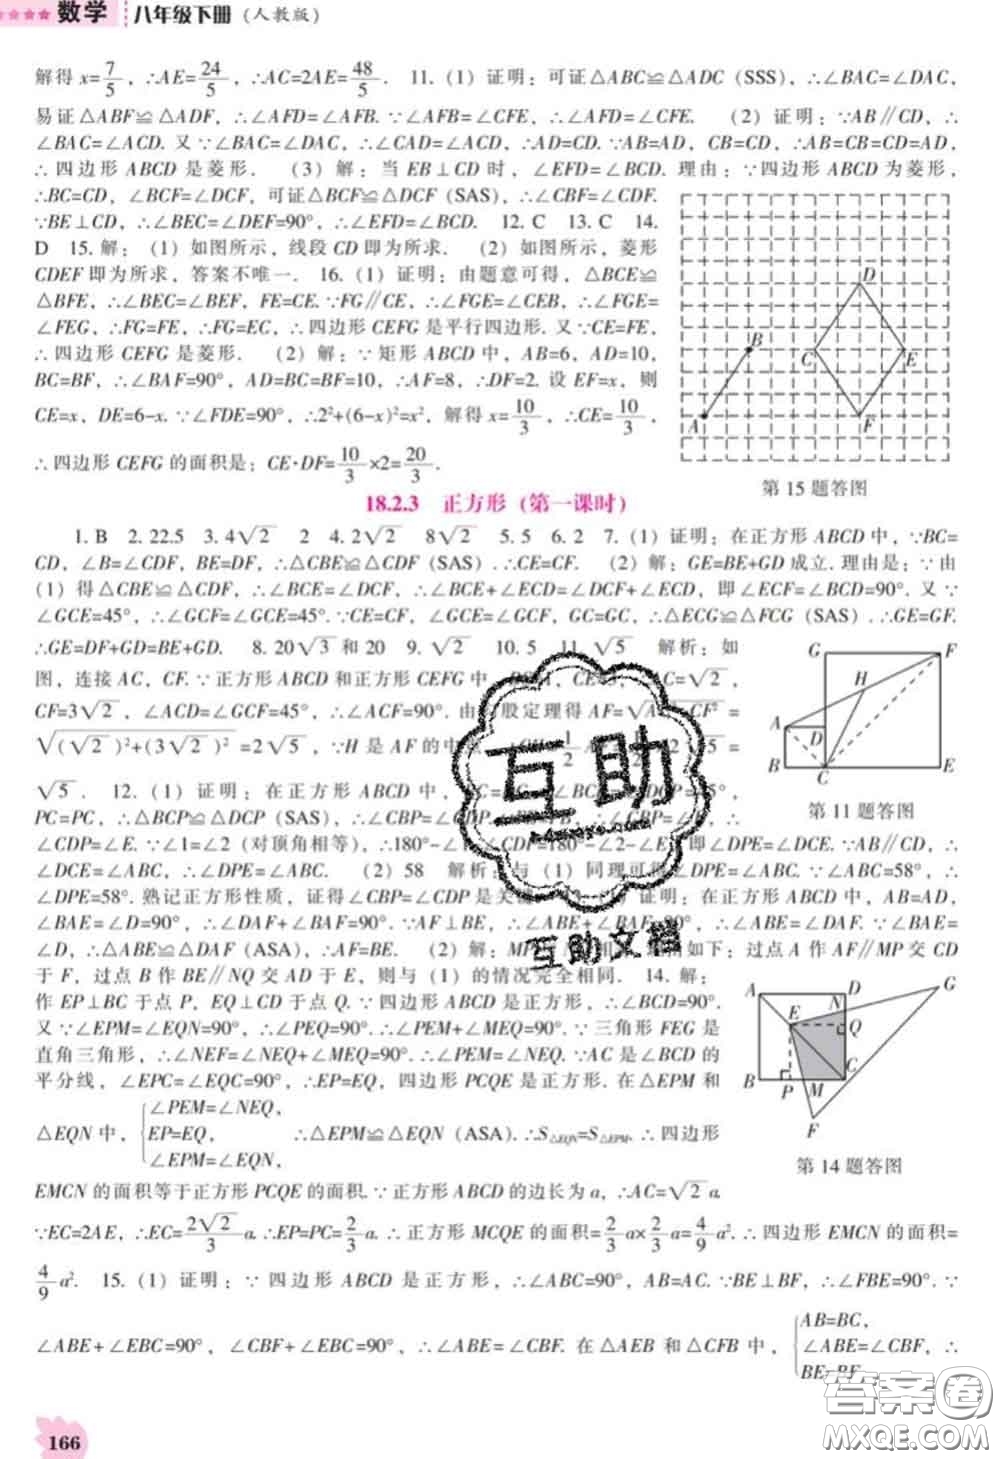 数学 八年级下册（人教版）
解得 x=7/5，∴AE=24/5，∴AC=2AE=48/5． 11.（1）证明：可证△ABC≌△ADC（SSS），∴∠BAC=∠DAC，
易证△ABF≌△ADF，∴∠AFD=∠AFB. ∵∠AFB=∠CFE，∴∠AFD=∠CFE. （2）证明：∵AB∥CD，∴
∠BAC=∠ACD. 又∵∠BAC=∠DAC，∴∠CAD=∠ACD，∴AD=CD. ∵AB=AD，CB=CD，∴AB=CB=CD=AD，
∴四边形 ABCD 是菱形. （3）解：当 EB⊥CD 时，∠EFD=∠BCD. 理由：∵四边形 ABCD 为菱形，
∴BC=CD，∠BCF=∠DCF，可证△BCF≌△DCF（SAS），∴∠CBF=∠CDF.
∵BE⊥CD，∴∠BEC=∠DEF=90°，∴∠EFD=∠BCD. 12. C 13. C 14.
D 15. 解：（1）如图所示，线段 CD 即为所求. （2）如图所示，菱形
CDEF 即为所求，答案不唯一. 16.（1）证明：由题意可得，△BCE≌
△BFE，∴∠BEC=∠BEF，FE=CE. ∵FG∥CE，∴∠FGE=∠CEB，∴∠FGE=
∠FEG，∴FG=FE，∴FG=EC，∴四边形 CEFG 是平行四边形. 又∵CE=FE，
∴四边形 CEFG 是菱形. （2）解：∵矩形 ABCD 中，AB=6，AD=10，
BC=BF，∴∠BAF=90°，AD=BC=BF=10，∴AF=8，∴DF=2. 设 EF=x，则
CE=x，DE=6-x. ∵∠FDE=90°，∴2²+(6-x)²=x²，解得 x=10/3，∴CE=10/3，
∴四边形 CEFG 的面积是：CE·DF=10/3×2=20/3.
D
B
C
E
A
F
第 15 题答图
18.2.3 正方形（第一课时）
1. B 2. 22.5 3. 4√2 2 4. 2√2 8√2 5. 5 6. 2 7.（1）证明：在正方形 ABCD 中，∵BC=
CD，∠B=∠CDF，BE=DF，∴△CBE≌△CDF（SAS）. ∴CE=CF. （2）解：GE=BE+GD 成立. 理由是：∵由
（1）得△CBE≌△CDF，∴∠BCE=∠DCF，∴∠BCE+∠ECD=∠DCF+∠ECD，即∠ECF=∠BCD=90°. 又∵
∠GCE=45°，∴∠GCF=∠GCE=45°. ∵CE=CF，∠GCE=∠GCF，GC=GC，∴△ECG≌△FCG（SAS）. ∴GE=GF.
∴GE=DF+GD=BE+GD. 8. 20√3 和 20 9. √2 10. 5 11. √5 解析：如
图，连接 AC，CF. ∵正方形 ABCD 和正方形 CEFG 中，AC=√2，
CF=3√2，∠ACD=∠GCF=45°，∴∠ACF=90°. 由股定理得 AF=√CF² =
√(√2)²+(3√2)² =2√5，∵H 是 AF 的中 1/2 =
√5. 12.（1）证明：在正方形 ABCD 中，
PC=PC，∴△BCP≌△DCP（SAS），∴∠CBP=∠
∠CDP=∠E. ∵∠1=∠2（对顶角相等），∴180°-∠1-∠CDF=180°-∠2-∠E，即∠DPE=∠DCE. ∵AB∥CD，∴
∠DCE=∠ABC，∴∠DPE=∠ABC. （2）58 解析：与（1）同理可得∠DPE=∠ABC. ∵∠ABC=58°，∴
∠DPE=58°. 熟记正方形性质，证得∠CBP=∠CDP 是关 证明：在正方形 ABCD 中，AB=AD，
∠BAE=∠D=90°，∴∠DAF+∠BAF=90°. ∵AF⊥BE，∴∠ABE+∠BAF=90°，∴∠ABE=∠DAF. ∵∠BAE=
∠D，∴△ABE≌△DAF（ASA），∴AF=BE. （2）解：MP 如下：过点 A 作 AF∥MP 交 CD
于 F，过点 B 作 BE∥NQ 交 AD 于 E，则与（1）的情况完全相同. 14. 解：
作 EP⊥BC 于点 P，EQ⊥CD 于点 Q. ∵四边形 ABCD 是正方形，∴∠BCD=90°.
又∵∠EPM=∠EQN=90°，∴∠PEQ=90°. ∴∠PEM+∠MEQ=90°. ∵三角形 FEG 是
直角三角形，∴∠NEF=∠NEQ+∠MEQ=90°. ∴∠PEM=∠NEQ. ∵AC 是∠BCD 的
平分线，∠EPC=∠EQC=90°，∴EP=EQ，四边形 PCQE 是正方形. 在△EPM 和
△EQN 中，{∠PEM=∠NEQ，
EP=EQ， ∴△EPM≌△EQN（ASA）. ∴S△EQN=S△EPM. ∴四边形
∠EPM=∠EQN，
EMCN 的面积等于正方形 PCQE 的面积. ∵正方形 ABCD 的边长为 a，∴AC=√2 a.
∵EC=2AE，∴EC=2√2/3 a. ∴EP=PC=2/3 a. ∴正方形 MCQE 的面积=2/3 a×2/3 a=4/9 a². ∴四边形 EMCN 的面积=
4/9 a². 15.（1）证明：∵四边形 ABCD 是正方形，∴∠ABC=90°，AB=AC. ∵BE⊥BF，∴∠FBE=90°. ∵
∠ABE+∠EBC=90°，∠CBF+∠EBC=90°，∴∠ABE=∠CBF. 在△AEB 和△CFB 中，{AB=BC，
∠ABE=∠CBF，∴
BE=BF
G F
H
A D
B C E
第 11 题答图
A D G
E N Q
B P M C
F
第 14 题答图
互助
互助文档
答案圈
MXQE.COM
166